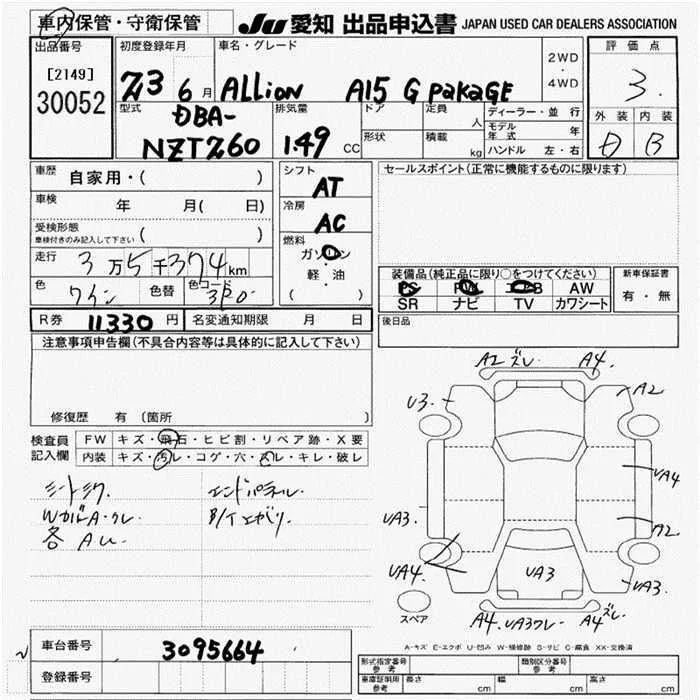 車内保管・守衛保管 JU 愛知 出品申込書 JAPAN USED CAR DEALERS ASSOCIATION
出品番号 初度登録年月 車名・グレード 2WD・4WD 評価点
[2149]
30052 23 6月 ALLion A15 G PakaGE 3.
型式 排気量 CC ドア 定員 人 ディーラー・並行 外装 内装
DBA-
NZT260 1.49 形状 積載 kg モデル年式 年 B
ハンドル 左・右
車歴 自家用・( ) シフト AT セールスポイント(正常に機能するものに限ります)
車検 年 月( 日) 冷房 AC
受検形態 ( )
車検付きのみ記入して下さい
走行 3万5千374km 燃料 ガソリン・軽・油 ( )
色 ワイン 色替 色コード 3P0 装備品(純正品に限り○をつけてください) 新車保証書
PS AW 有・無
SR ナビ TV カワシート
R券 11330円 名変通知期限 月 日 後日品
注意事項申告欄(不具合内容等は具体的に記入して下さい)
修復歴 有 (箇所 )
検査員記入欄 FW キズ・飛石・ヒビ割・リペア跡・X要
内装 キズ・汚レ・コゲ・穴・スレ・キレ・破レ
エンドパネル.
A2 ズレ. A4.
U3. A2
UA4
UA3. A2
UA4. UA3 UA3.
スペア A4. UA3ワレ. A4ズレ.
A-キズ E-エクボ U-凹み W-補修跡 S-サビ C-腐食 XX-交換済
車台番号 3095664
登録番号
型式指定番号 参考 類別区分番号 参考
車庫証明用 参考 長さ cm 幅 cm 高さ cm